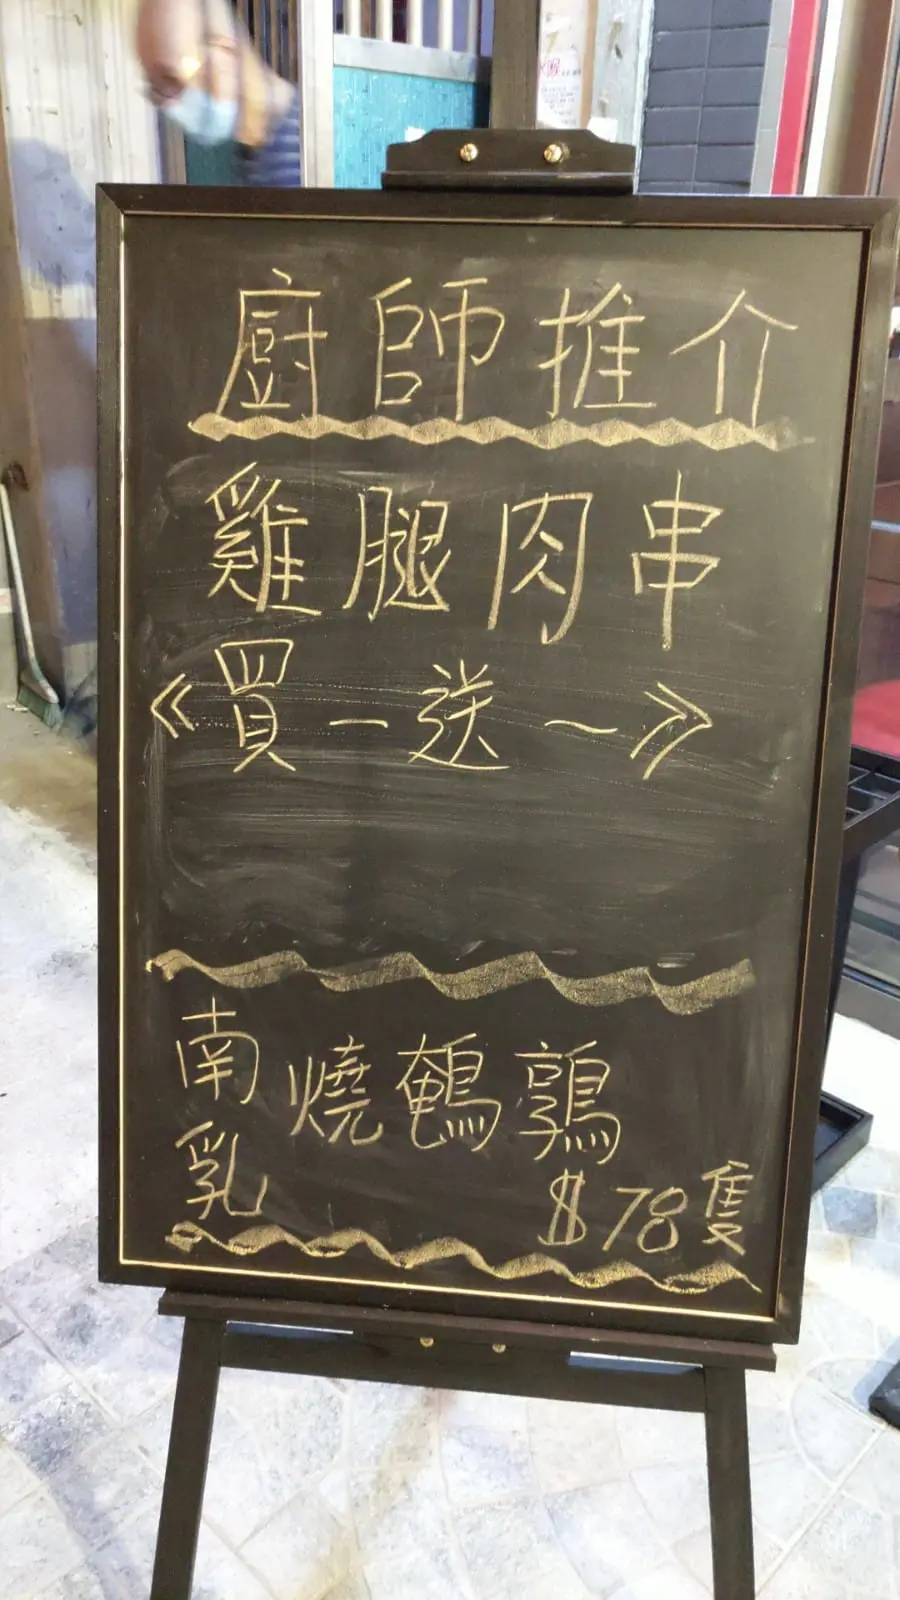 廚師推介
雞腿肉串
《買一送一》
南乳
燒鵪鶉
$78隻